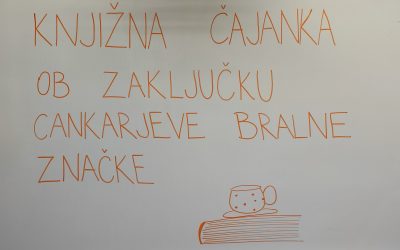 KNJIŽNA ČAJANKA
OB ZAKLJUČKU
CANKARJEVE BRALNE
ZNAČKE